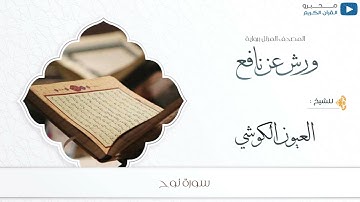 مخبرو
القرآن الكريم
المصحف المنزل برواية
ورش عن نافع
للشيخ :
العيون الكوشي
سورة نوح